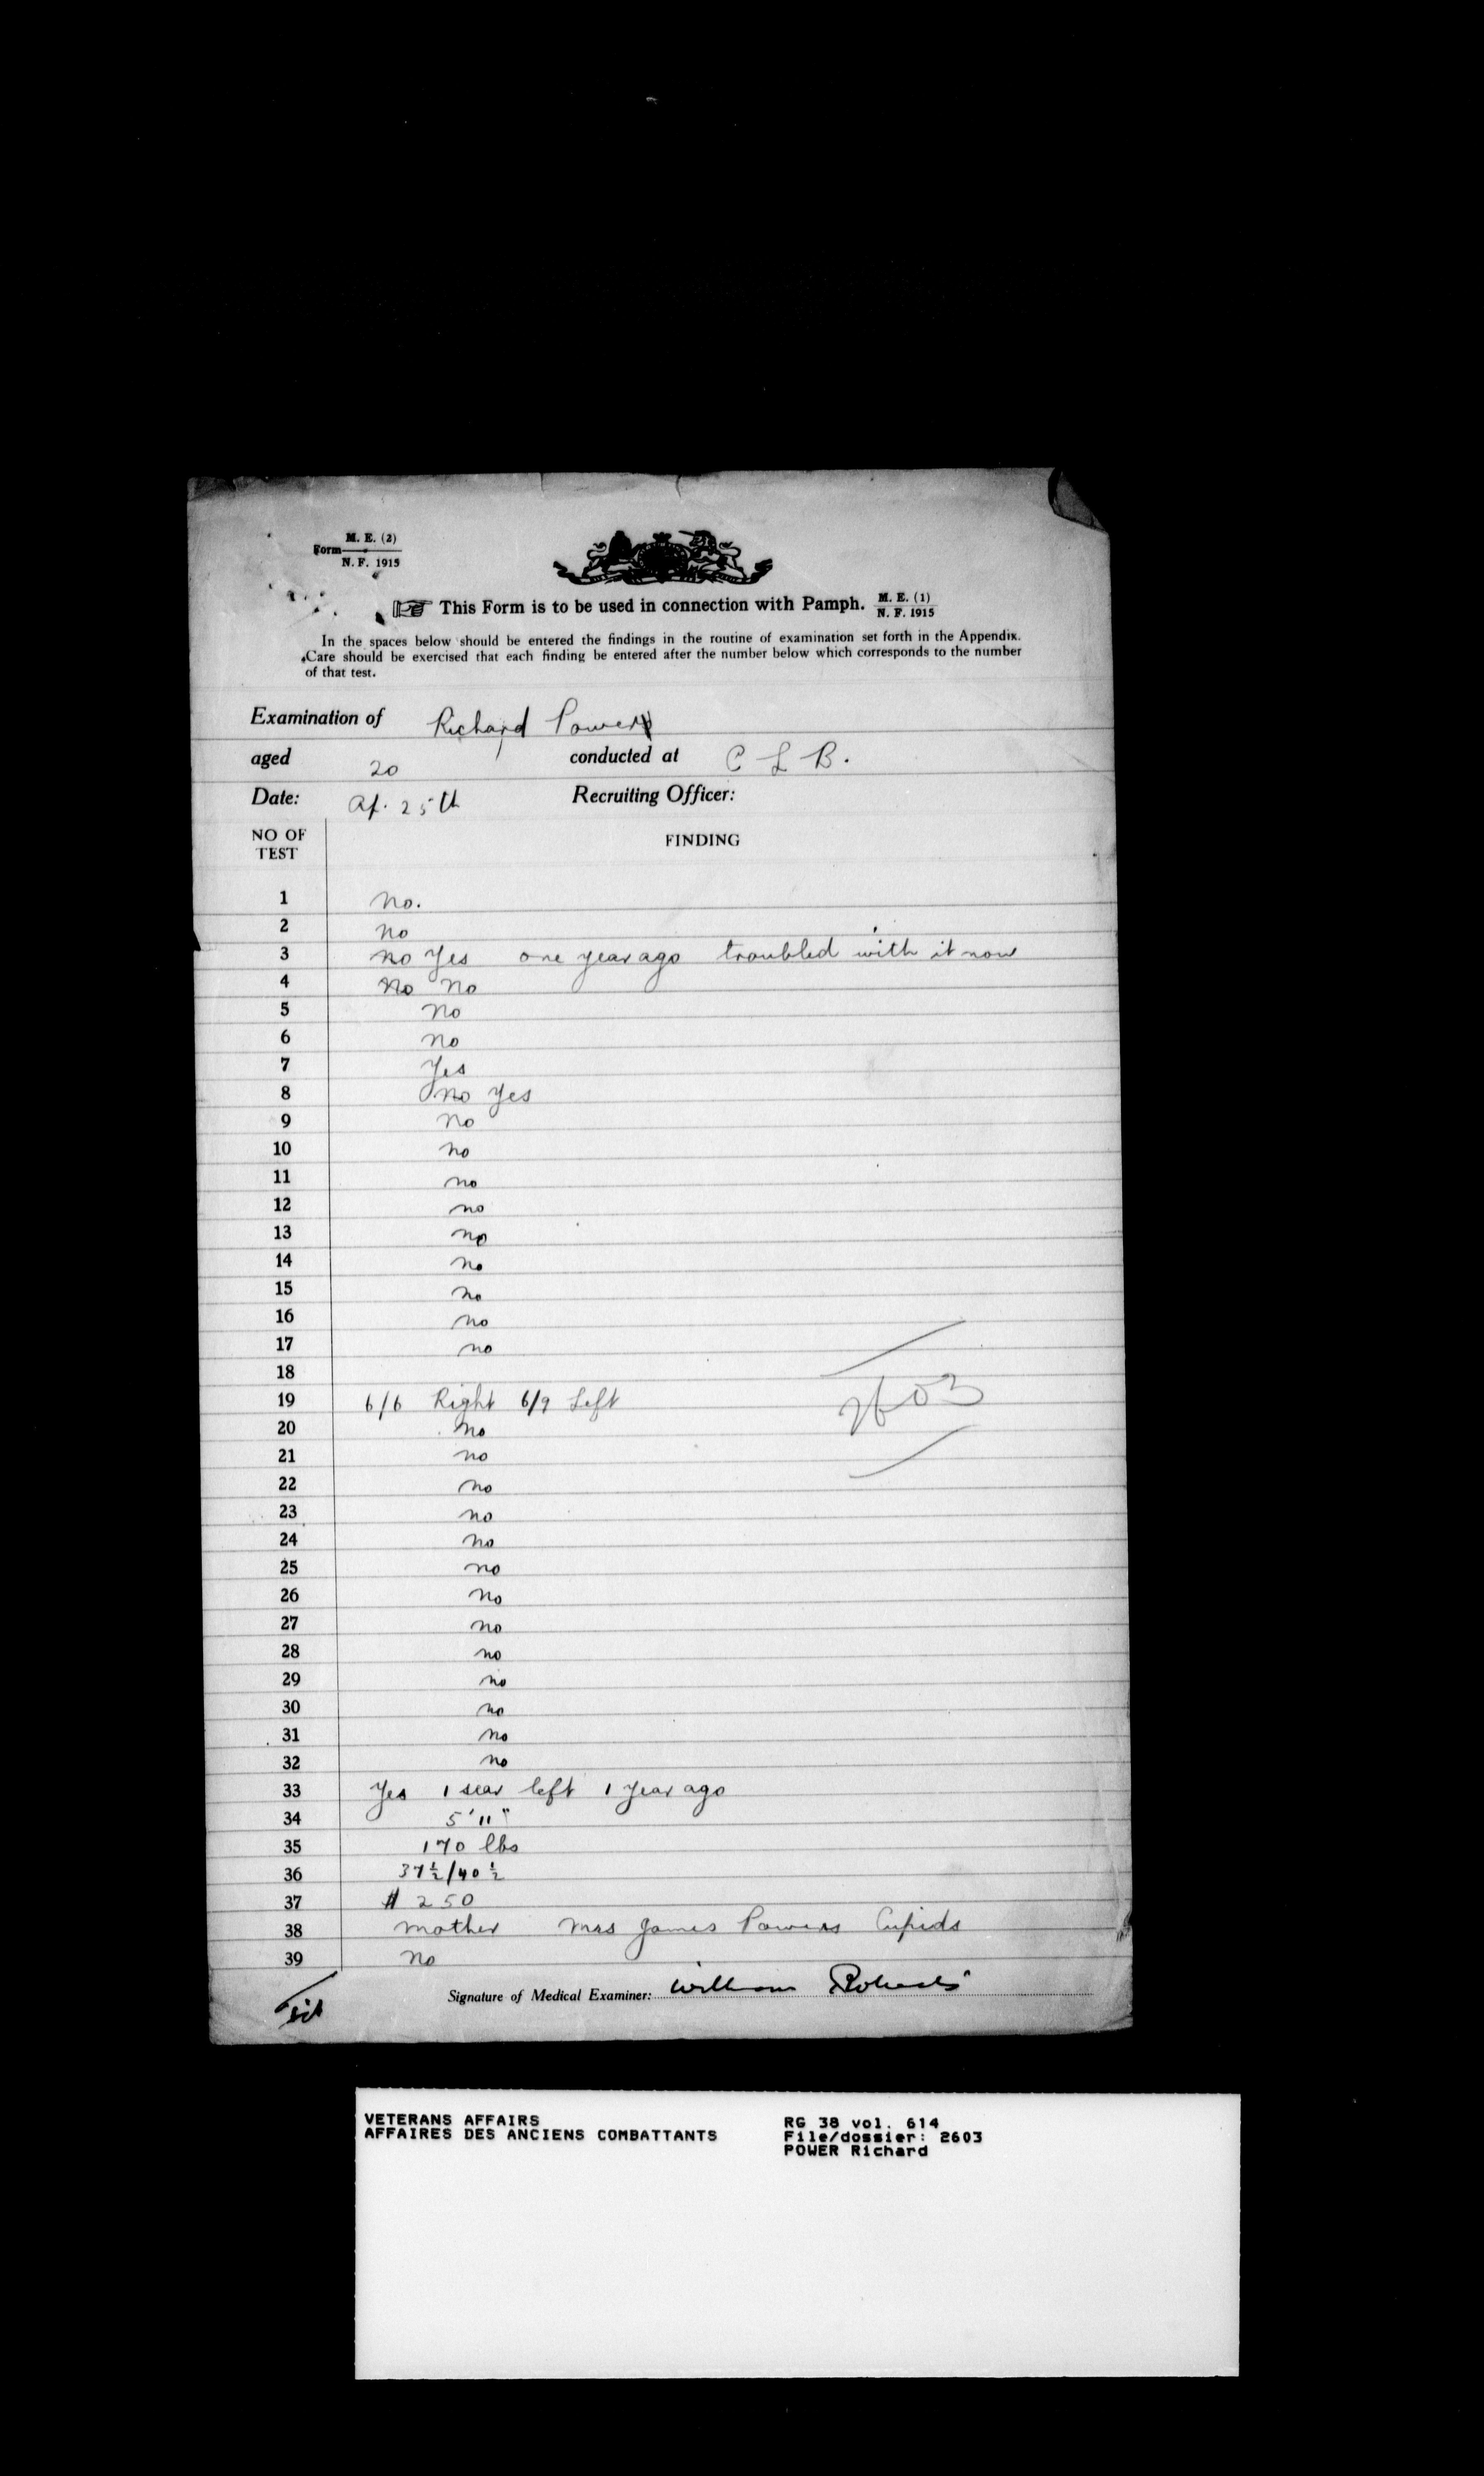 M. E. (2)
Form
N. F. 1915
This Form is to be used in connection with Pamph. M. E. (1)
N. F. 1915
In the spaces below should be entered the findings in the routine of examination set forth in the Appendix.
Care should be exercised that each finding be entered after the number below which corresponds to the number
of that test.
Examination of Richard Power
aged 20 conducted at C L B.
Date: Ap. 25th Recruiting Officer:
NO OF
TEST
FINDING
1 no.
2 no
3 no Yes one year ago troubled with it now
4 no no
5 no
6 no
7 Yes
8 no Yes
9 no
10 no
11 no
12 no
13 no
14 no
15 no
16 no
17 no
18
19 6/6 Right 6/9 Left
2603
20 no
21 no
22 no
23 no
24 no
25 no
26 no
27 no
28 no
29 no
30 no
31 no
32 no
33 Yes 1 scar left 1 year ago
34 5' 11"
35 170 lbs
36 37 1/2 / 40 1/2
37 $ 250
38 mother mrs James Powers Cupids
39 no
Signature of Medical Examiner: William Roberts
VETERANS AFFAIRS
AFFAIRES DES ANCIENS COMBATTANTS
RG 38 vol. 614
File/dossier: 2603
POWER Richard